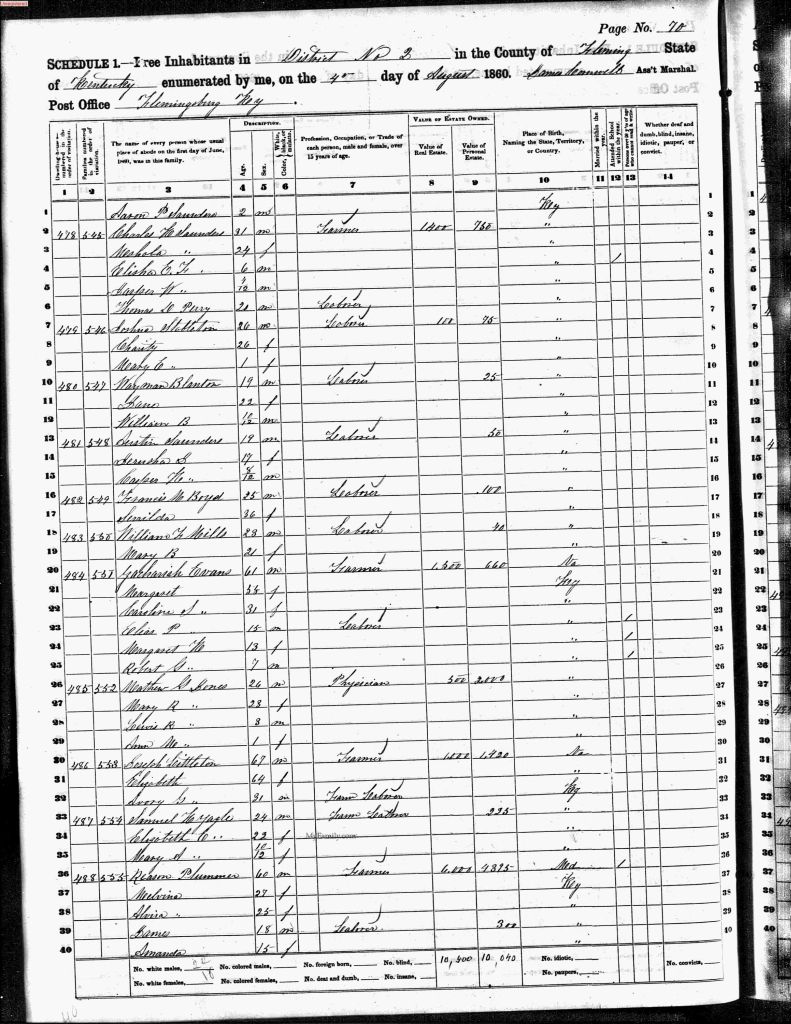 Page No. 70
SCHEDULE 1.—Free Inhabitants in District No 2 in the County of Fleming State
of Kentucky enumerated by me, on the 4th day of August 1860. Ass't Marshal.
Post Office Flemingsburg Key.
Dwelling-houses numbered in the order of visitation.
Families numbered in the order of visitation.
The name of every person whose usual place of abode on the first day of June, 1860, was in this family.
DESCRIPTION.
Age.
Sex.
Color, White, black, or mulatto.
Profession, Occupation, or Trade of each person, male and female, over 15 years of age.
VALUE OF ESTATE OWNED.
Value of Real Estate.
Value of Personal Estate.
Place of Birth, Naming the State, Territory, or Country.
Married within the year.
Attended School within the year.
Persons over 20 y'rs of age who cannot read & write.
Whether deaf and dumb, blind, insane, idiotic, pauper, or convict.
1 2 3 4 5 6 7 8 9 10 11 12 13 14
1 Aaron B Saunders 2 m Key 1
2 478 545 Charles H Saunders 31 m Farmer 1400 750 " 2
3 " 24 f " 3
4 Elisha E. F. " 6 m " 1 4
5 Harper W " 4/12 m " 5
6 Thomas D Perry 20 m Laborer " 6
7 479 546 Joshua 26 m Laborer 100 75 " 7
8 Charity 26 f " 8
9 Mary E " 1 f " 9
10 480 547 Wayman Blanton 19 m Laborer 25 " 10
11 22 f " 11
12 William B 10/12 m " 12
13 481 548 Saunders 19 m Laborer 50 " 13
14 Jerusha 17 f " 14
15 8/12 m " 15
16 482 549 Francis M Boyd 25 m Laborer 100 " 16
17 36 f " 17
18 483 550 William F Mills 23 m Laborer 40 " 18
19 Mary B 21 f " 19
20 484 551 Zachariah Evans 61 m Farmer 1,500 660 Va 20
21 Margaret 55 f Key 21
22 Caroline " 31 f " 22
23 Elias P " 15 m Laborer " 1 23
24 Margaret 13 f " 1 24
25 Robert G " 7 m " 1 25
26 485 552 Mathew G Jones 26 m Physician 500 2,000 " 26
27 Mary R " 28 f " 27
28 Lewis R " 3 m " 28
29 Ann M " 1 f " 29
30 486 553 Joseph Littleton 67 m Farmer 1000 1,420 Va 30
31 Elizabeth 64 f " 31
32 " 31 m Farm Laborer Key 32
33 487 554 Samuel H Yagle 24 m Farm Laborer 225 " 33
34 Elizabeth C " 22 f " 34
35 Mary " 10/12 f " 35
36 488 555 Reason Plummer 60 m Farmer 6,000 4895 Med 1 36
37 Melvina 27 f Key 37
38 Alvira " 25 f " 38
39 James 18 m Laborer 300 " 39
40 Amanda 15 f " 40
MyFamily.com
No. white males, 22 No. colored males, No. foreign born, No. blind, 10,500 10,040 No. idiotic, No. convicts,
No. white females, 18 No. colored females, No. deaf and dumb, No. insane, No. paupers,